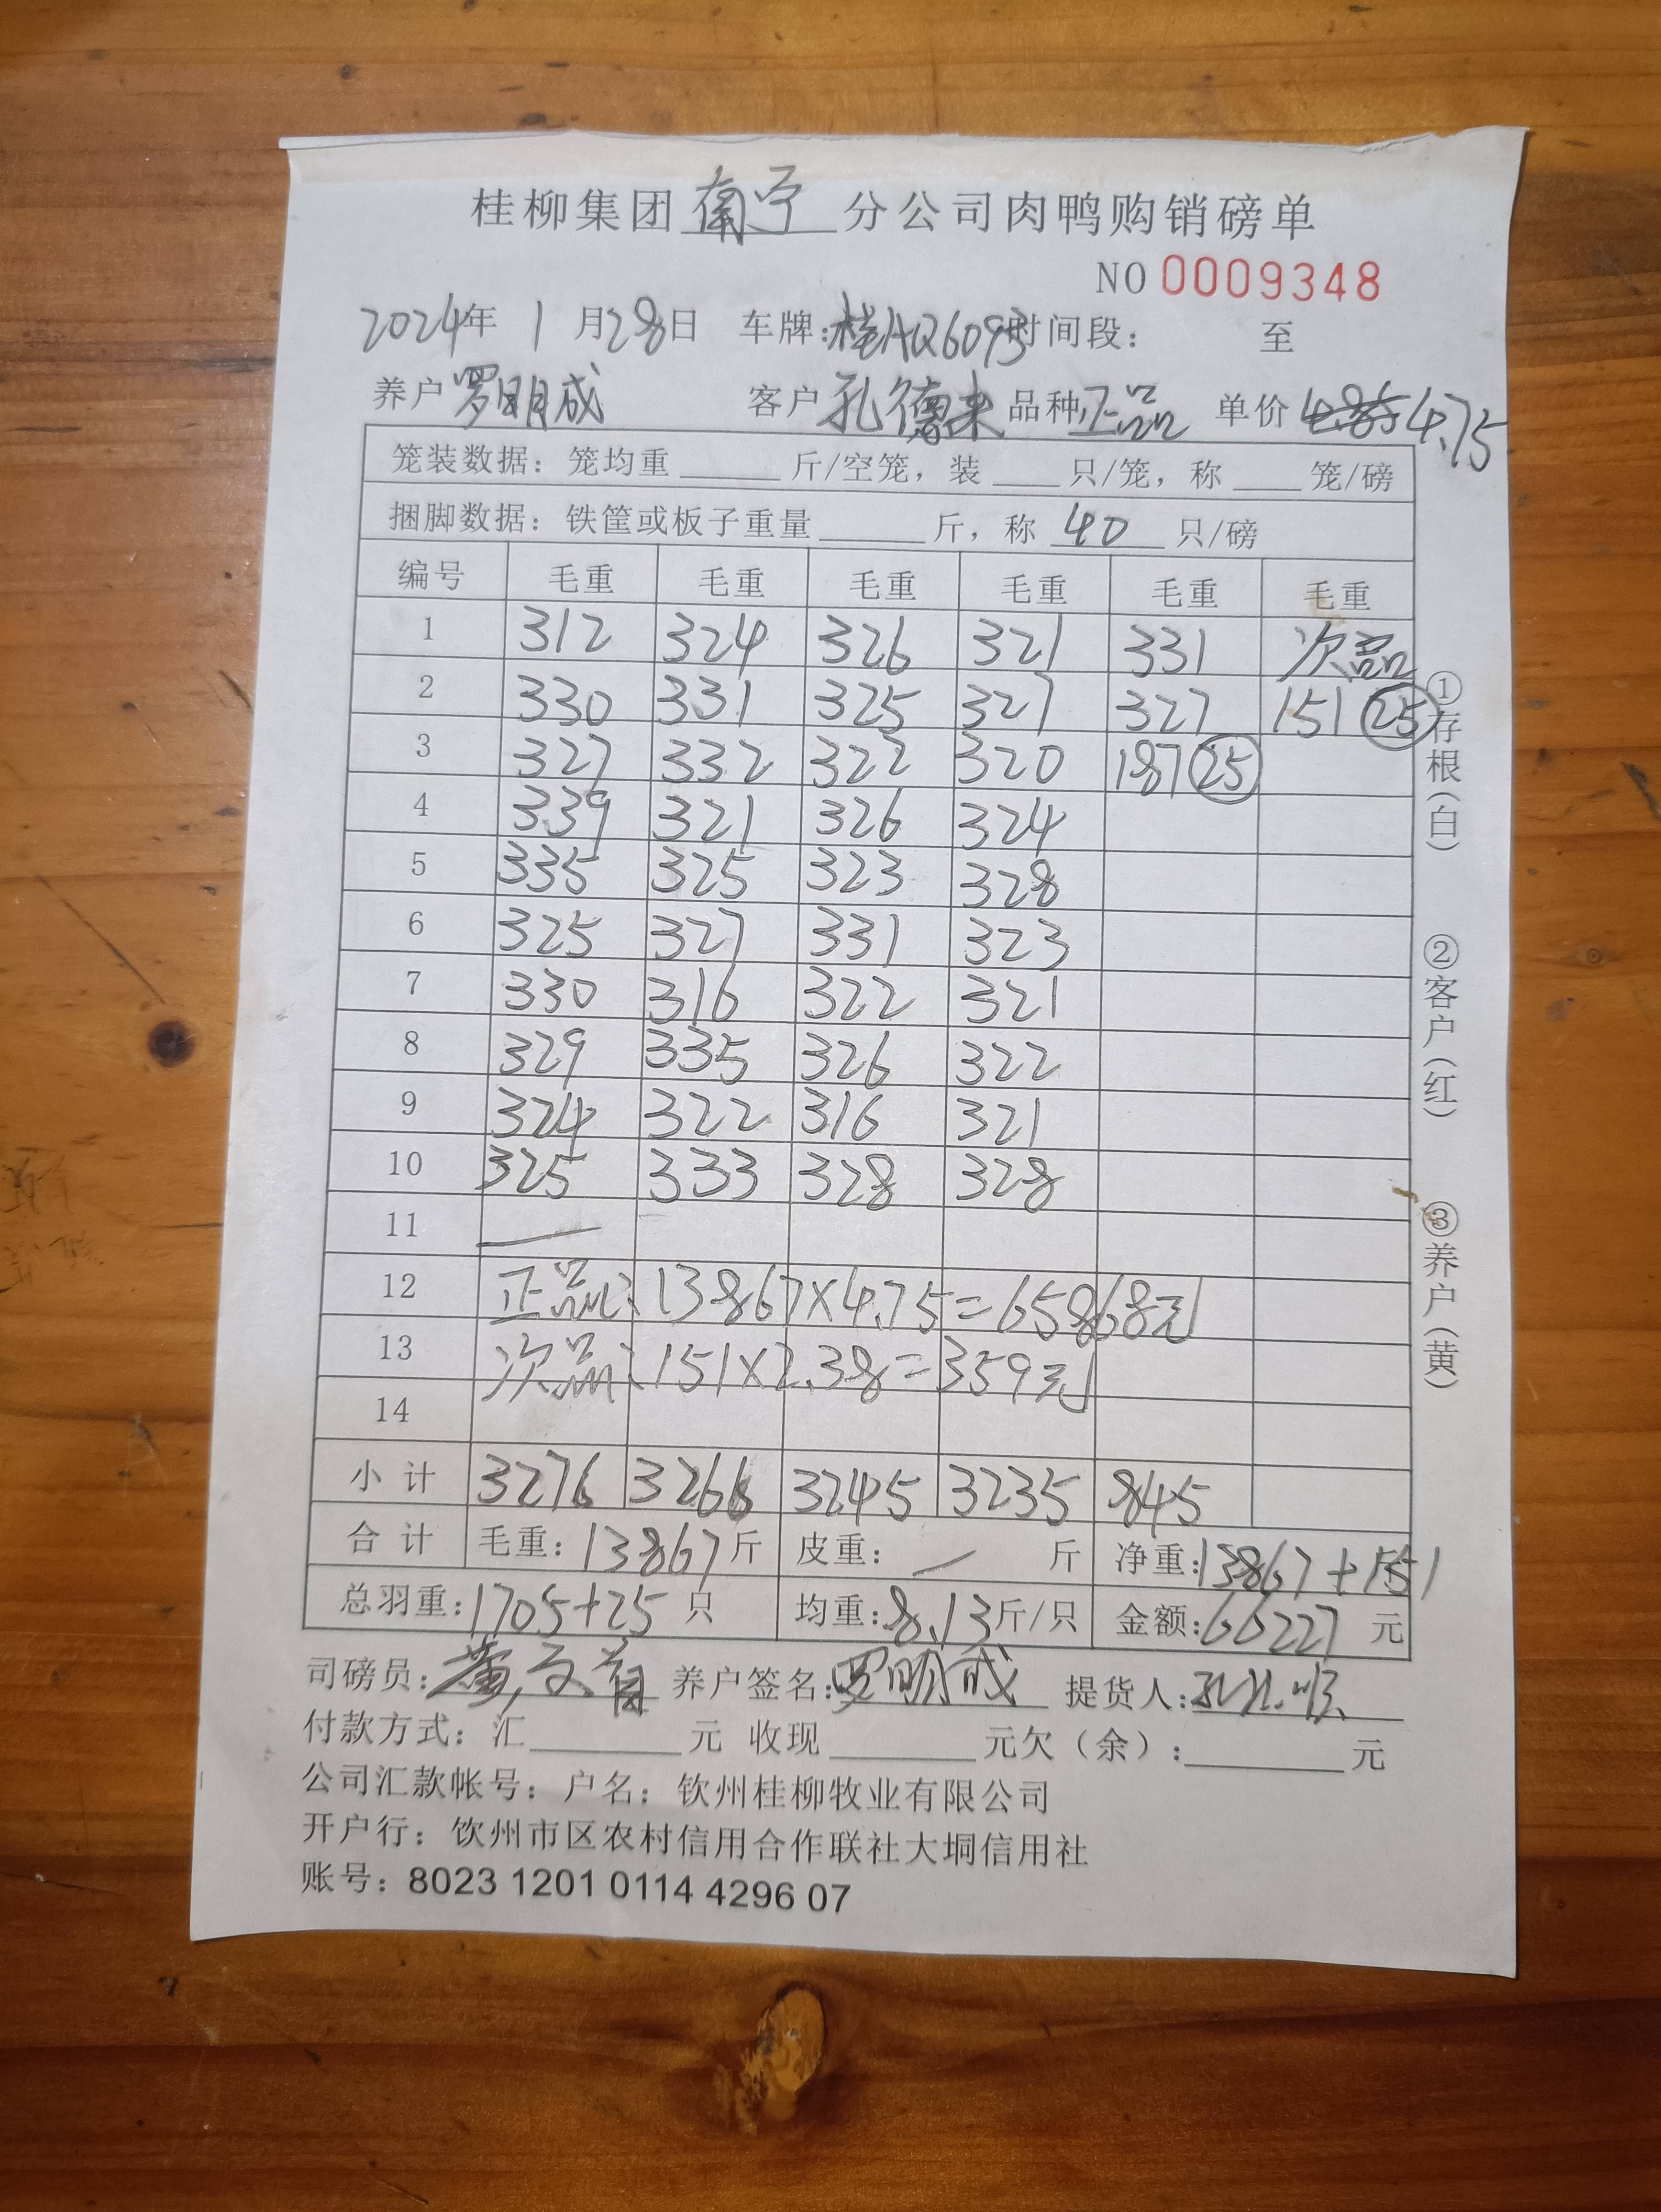 桂柳集团南宁分公司肉鸭购销磅单
NO 0009348
2024年 1 月28日 车牌:桂AQ6095 时间段: 至
养户 罗明成 客户 孔德来 品种 正品 单价 4.85 4.75
笼装数据: 笼均重 斤/空笼, 装 只/笼, 称 笼/磅
捆脚数据: 铁筐或板子重量 斤, 称 40 只/磅
编号 毛重 毛重 毛重 毛重 毛重 毛重
1 312 324 326 321 331 次品
2 330 331 325 327 327 151 25
3 327 332 322 320 187 25
4 339 321 326 324
5 335 325 323 328
6 325 327 331 323
7 330 316 322 321
8 329 335 326 322
9 324 322 316 321
10 325 333 328 328
11 —
12 正品: 13867×4.75=65868元
13 次品: 151×2.38=359元
14
小计 3276 3266 3245 3235 845
合计 毛重: 13867斤 皮重: — 斤 净重: 13867+151
总羽重: 1705+25 只 均重: 8.13斤/只 金额: 66227 元
司磅员: 养户签名: 罗明成 提货人:
付款方式: 汇 元 收现 元欠(余): 元
公司汇款帐号: 户名: 钦州桂柳牧业有限公司
开户行: 钦州市区农村信用合作联社大垌信用社
账号: 8023 1201 0114 4296 07
①存根(白)
②客户(红)
③养户(黄)